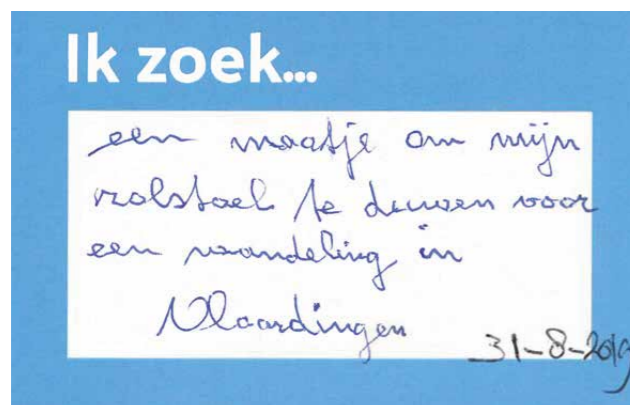 Ik zoek...
een maatje om mijn
rolstoel te duwen voor
een wandeling in
Vlaardingen
31-8-2019